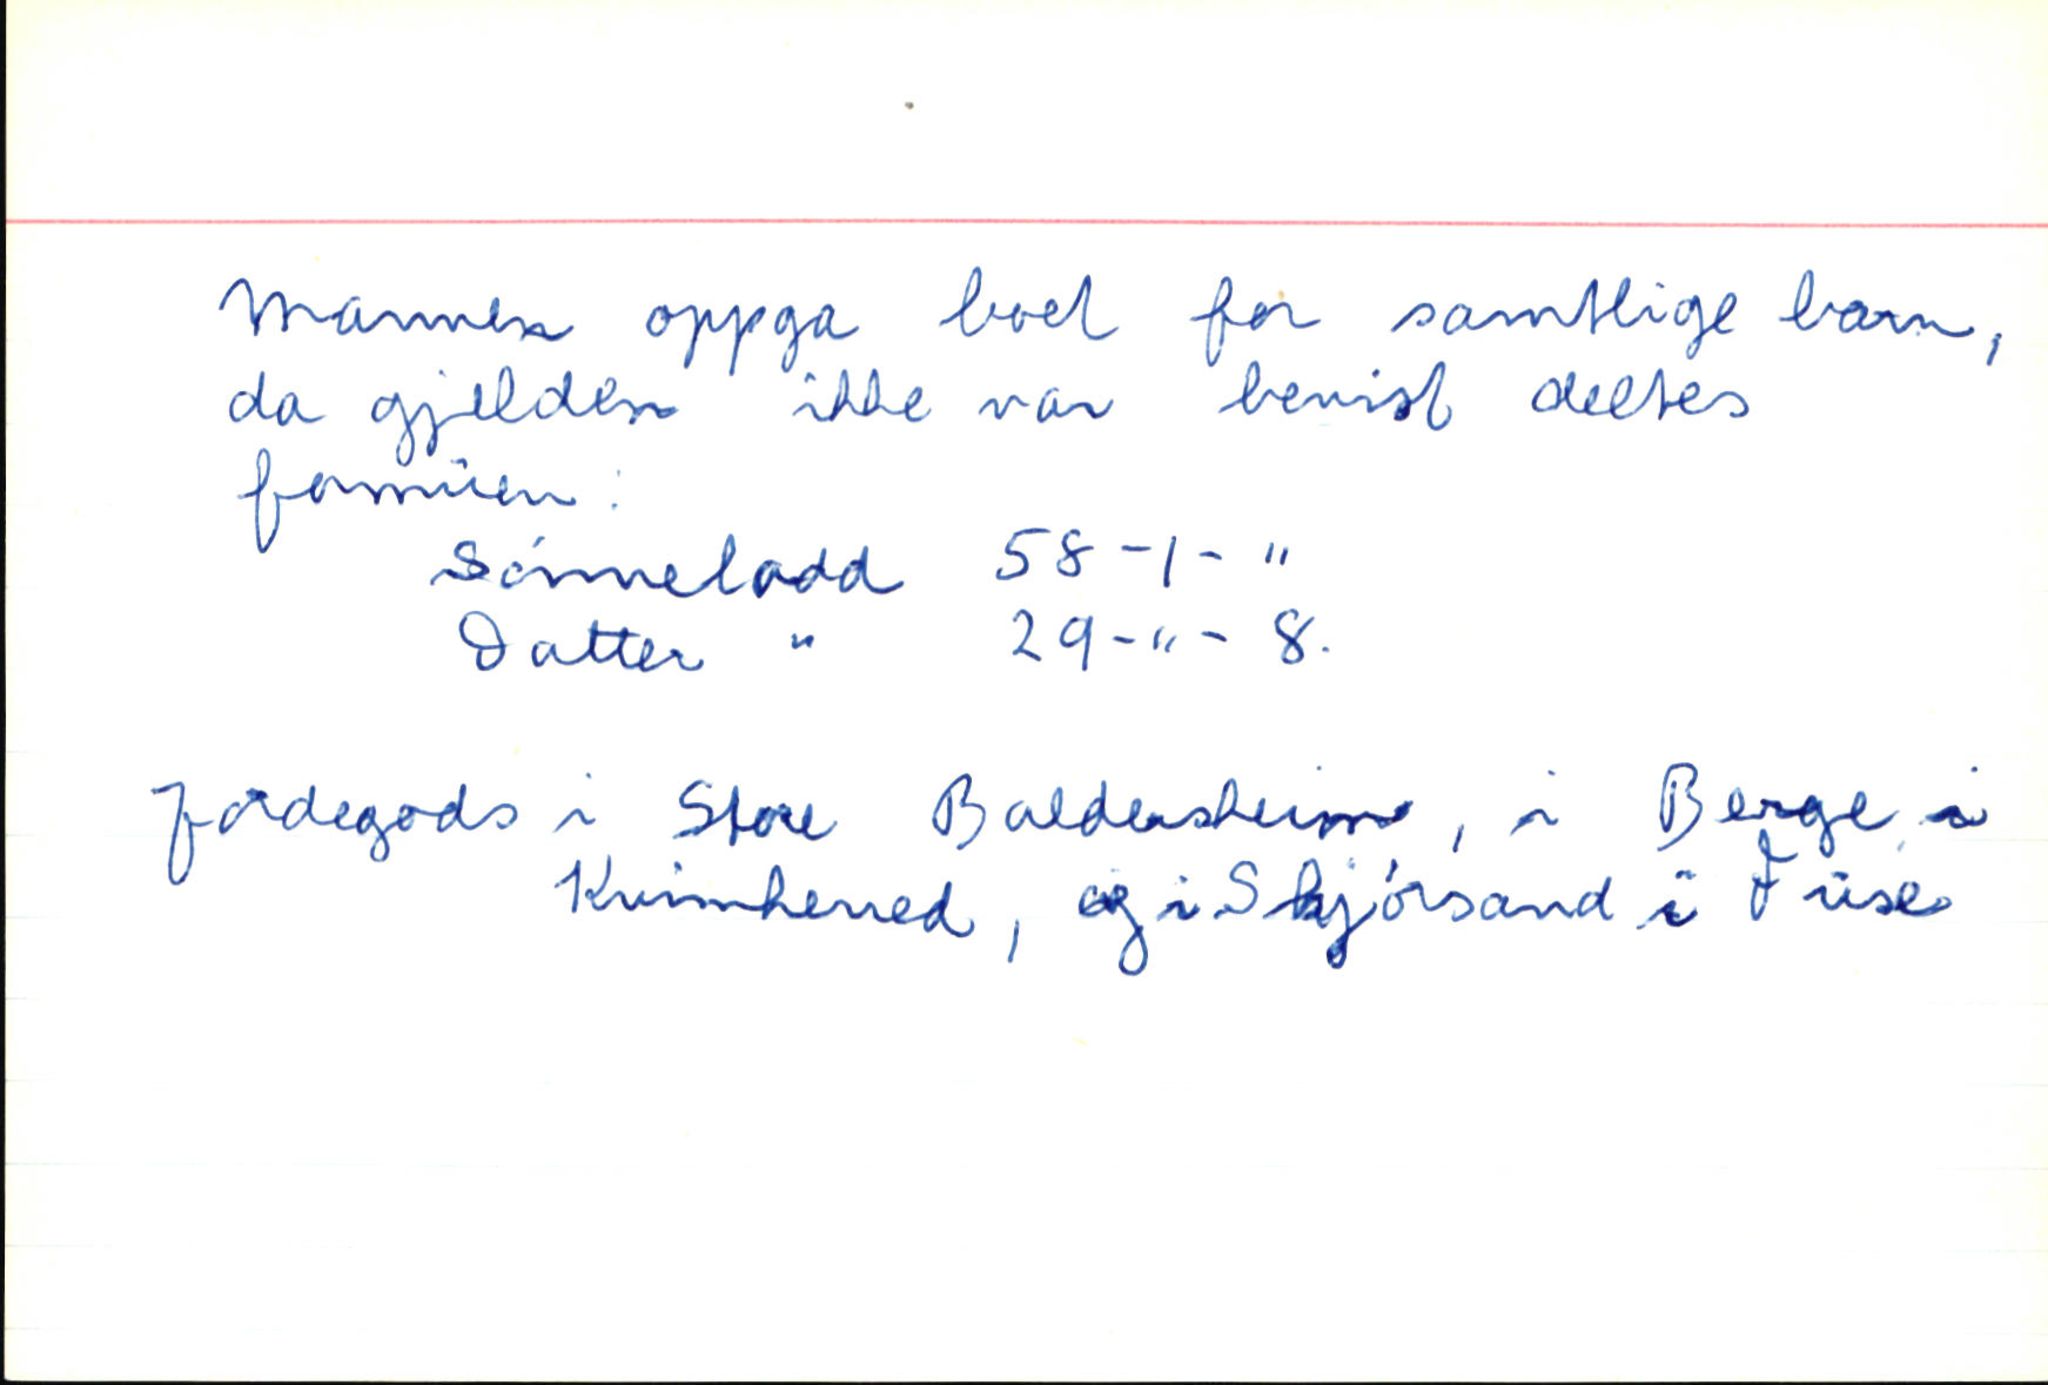 Mannen oppga boet for samtlige barn,
da gjelden ikke var bevist deltes
familien:
Sønnelodd 58-1-"
Datter " 29-"-8.
Jordegods i Store Baldersheim, i Berge i
Kvinnherred, og i Skjørsand i Fuse